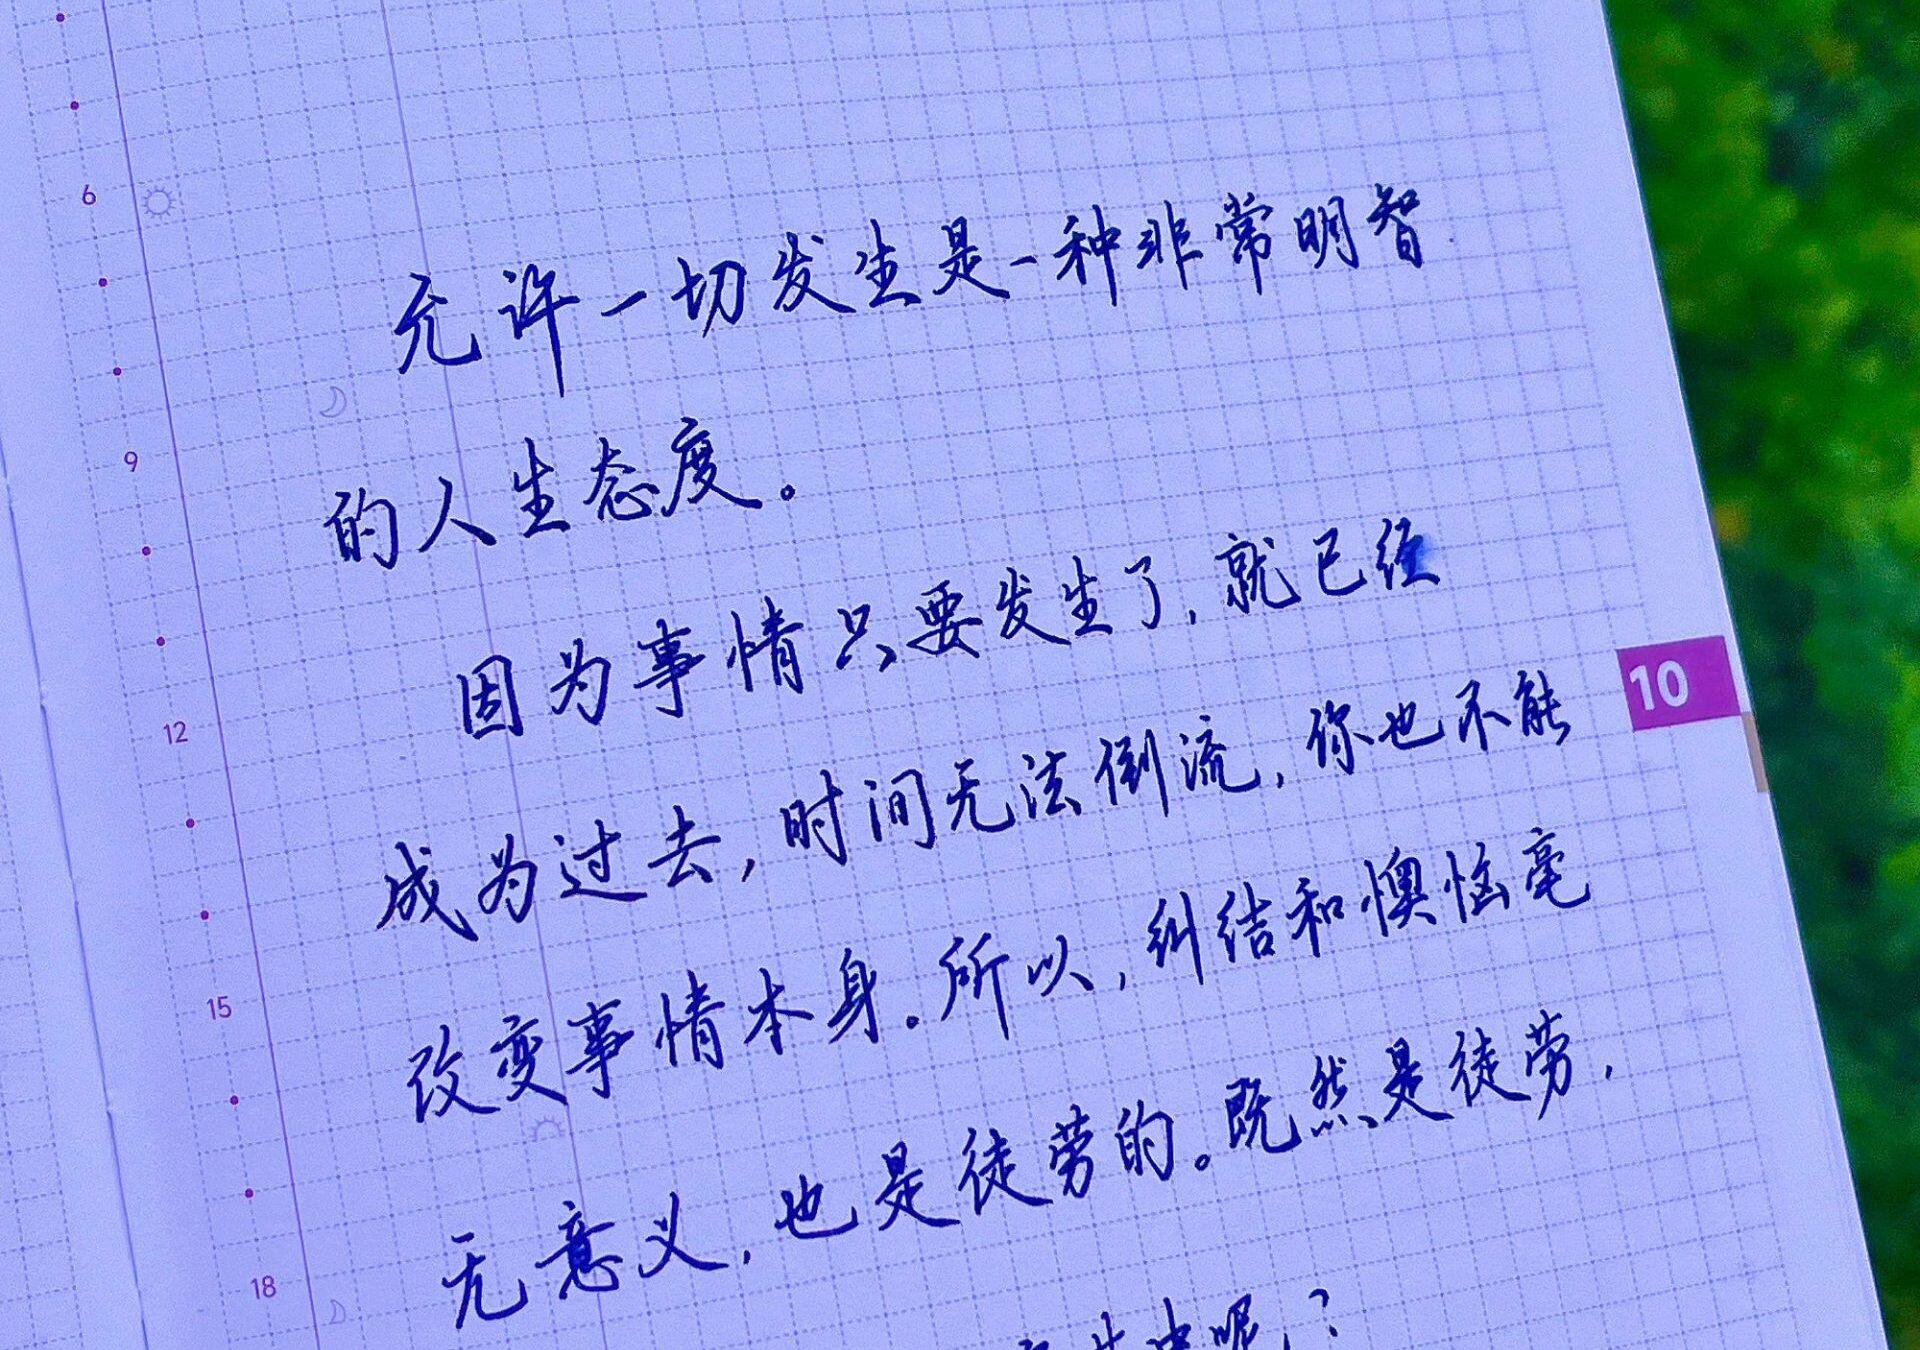 6
允许一切发生是一种非常明智
9
的人生态度。
因为事情只要发生了,就已经
10
12
成为过去,时间无法倒流,你也不能
15
改变事情本身。所以,纠结和懊恼毫
无意义,也是徒劳的。既然是徒劳,
18
其中呢?